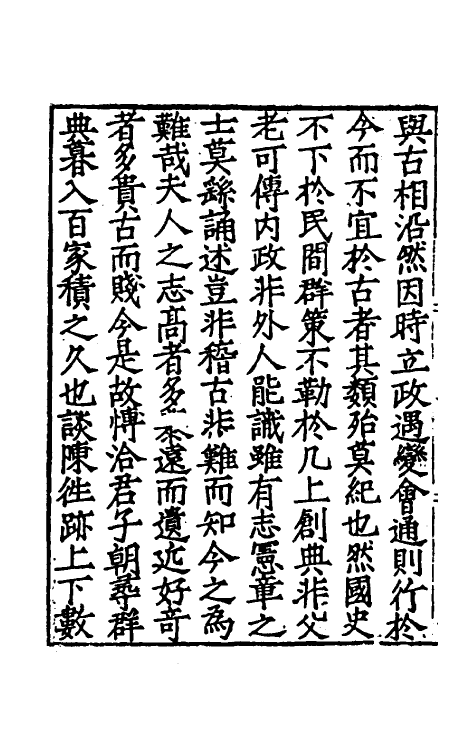 與古相沿然因時立政遇變會通則行於
今而不宜於古者其類殆莫紀也然國史
不下於民間群策不勒於几上創典非父
老可傳内政非外人能識雖有志憲章之
士莫繇誦述豈非稽古非難而知今之為
難哉夫人之志髙者多　遠而遺近好竒
者多貴古而賤今是故愽洽君子朝尋群
典暮入百家積之久也談陳徃跡上下數